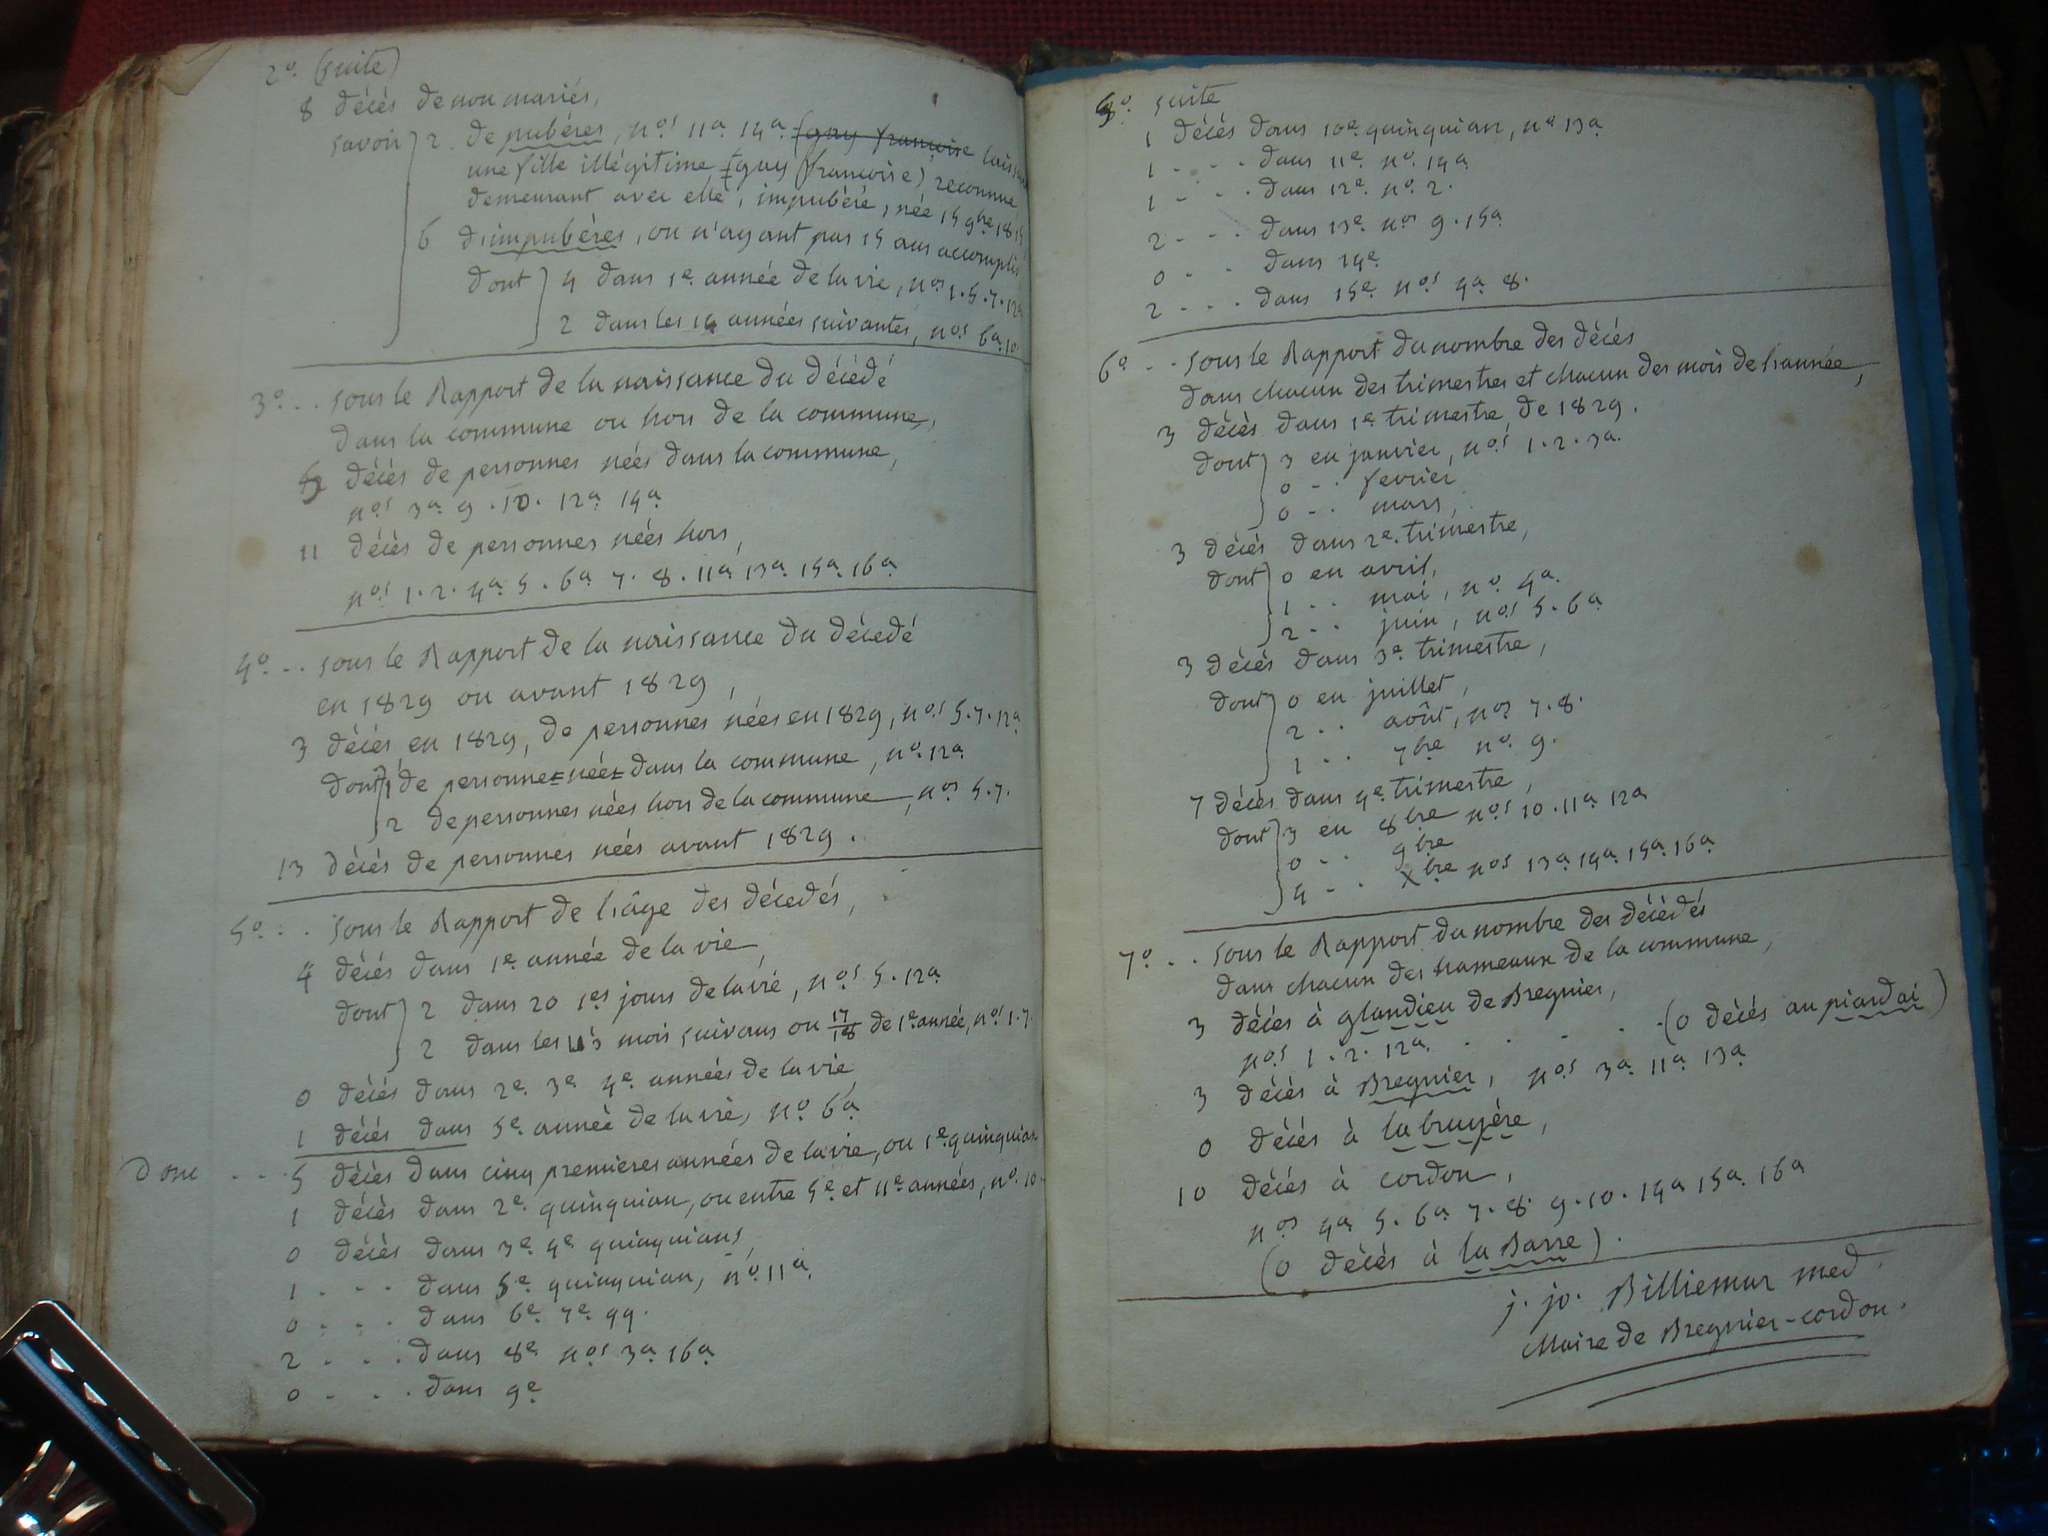 2º. (suite)
8 décès de non mariés,
savoir } 2. de pubères, nos 11a 14a (gay françoise
une fille illégitime, (gay françoise) reconnue
demeurant avec elle, impubère, née 15 9bre 18
6 d'impubères, ou n'ayant pas 15 ans accomplis
dont } 4 dans 1e année de la vie, nos 1. 5. 7. 12a
2 dans les 14 années suivantes, nos 6a. 10.
3º... sous le Rapport de la naissance du décédé
dans la commune ou hors de la commune,
5 décès de personnes nées dans la commune,
nos 3a 9. 10. 12a 14a
11 décès de personnes nées hors,
nos 1. 2. 4a. 5. 6a 7. 8. 11a 13a 15a 16a
4º... sous le Rapport de la naissance du décédé
en 1829 ou avant 1829,
3 décès en 1829, de personnes nées en 1829, nos 5. 7. 12a
dont } 1 de personne née dans la commune, no. 12a
2 de personnes nées hors de la commune, nos 5. 7.
13 décès de personnes nées avant 1829.
5º... sous le Rapport de l'âge des décédés,
4 décès dans 1e année de la vie,
dont } 2 dans 20 1ers jours de la vie, nos 5. 12a
2 dans les mois suivans ou 17/18 de 1e année, nos 1. 7.
0 décès dans 2e. 3e 4e. années de la vie
1 décès dans 5e. année de la vie, no 6a
Donc... 5 décès dans cinq premieres années de la vie, ou 1e quinquian
1 décès dans 2e. quinquian, ou entre 5e. et 11e. années, no. 10.
0 décès dans 3e. 4e quinquians,
1 ... dans 5e quinquian, no. 11a
0 ... dans 6e. 7e. qq.
2 ... dans 8e nos 3a 16a
0 ... dans 9e
5º. suite
1 décès dans 10e. quinquian, no 13a
1 ... dans 11e. no. 14a
1 ... dans 12e. no. 2.
2 ... dans 13e nos 9. 15a
0 ... dans 14e.
2 ... dans 15e nos 4a 8.
6º... sous le Rapport du nombre des décès
dans chacun des trimestres et chacun des mois de l'année,
3 décès dans 1e trimestre, de 1829.
dont } 3 en janvier, nos 1. 2. 3a.
0 ... fevrier
0 ... mars,
3 décès dans 2e. trimestre,
dont } 0 en avril,
1 ... mai, no 4a.
2 ... juin, nos 5. 6a
3 décès dans 3e. trimestre,
dont } 0 en juillet,
2 ... août, nos 7. 8.
1 ... 7bre no. 9.
7 décès dans 4e. trimestre,
dont } 3 en 8bre nos 10. 11a 12a
0 ... 9bre
4 ... Xbre nos 13a 14a 15a 16a
7º... sous le Rapport du nombre des décédés
dans chacun des hameaux de la commune,
3 décès à glandieu de Bregnier,
nos 1. 2. 12a. . . . . (0 décès au piardai)
3 décès à Bregnier, nos 3a 11a 13a
0 décès à la bruyère,
10 décès à cordon,
nos 4a 5. 6a 7. 8. 9. 10. 14a 15a. 16a
(0 décès à la Barre).
j. jo. Billiemur med.
Maire de Bregnier-cordon.